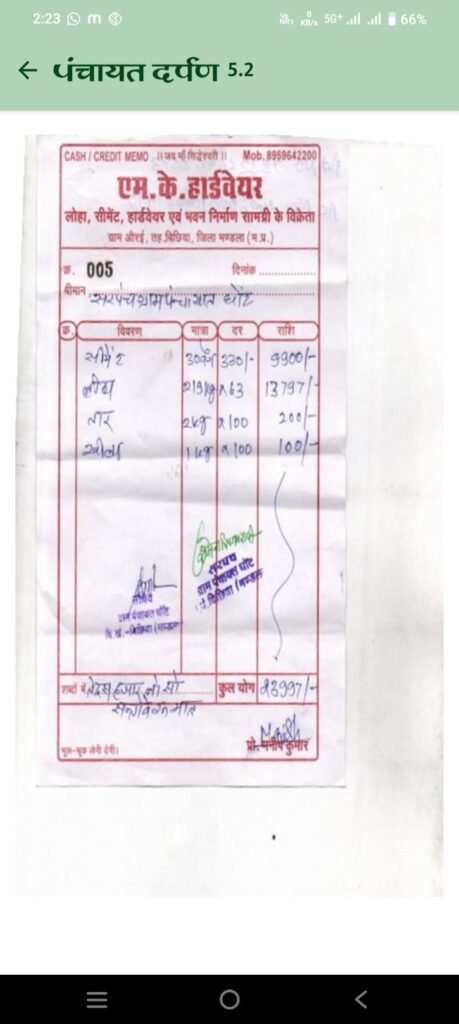 2:23
5G+
66%
← पंचायत दर्पण 5.2
CASH / CREDIT MEMO ।। जय माँ सिद्धेश्वरी ।। Mob. 8959642200
एम.के.हार्डवेयर
लोहा, सीमेंट, हार्डवेयर एवं भवन निर्माण सामग्री के विक्रेता
ग्राम औरई, तह.बिछिया, जिला मण्डला (म.प्र.)
क्र. 005 दिनांक ...............
श्रीमान सरपंच ग्राम पंचायत घोंट
क्र. विवरण मात्रा दर राशि
सीमेंट 30 330/- 9900/-
लोहा 219kg x63 13797/-
तार 2kg x100 200/-
खीला 1kg x100 100/-
सरपंच
ग्राम पंचायत घोंट
सचिव
ग्राम पंचायत घोंट
वि.खं.-बिछिया (मण्डला)
शब्दों में तेइस हजार नौ सौ कुल योग 23997/-
सन्तानवे मात्र
भूल-चूक लेनी देनी।
प्रो. मनीष कुमार